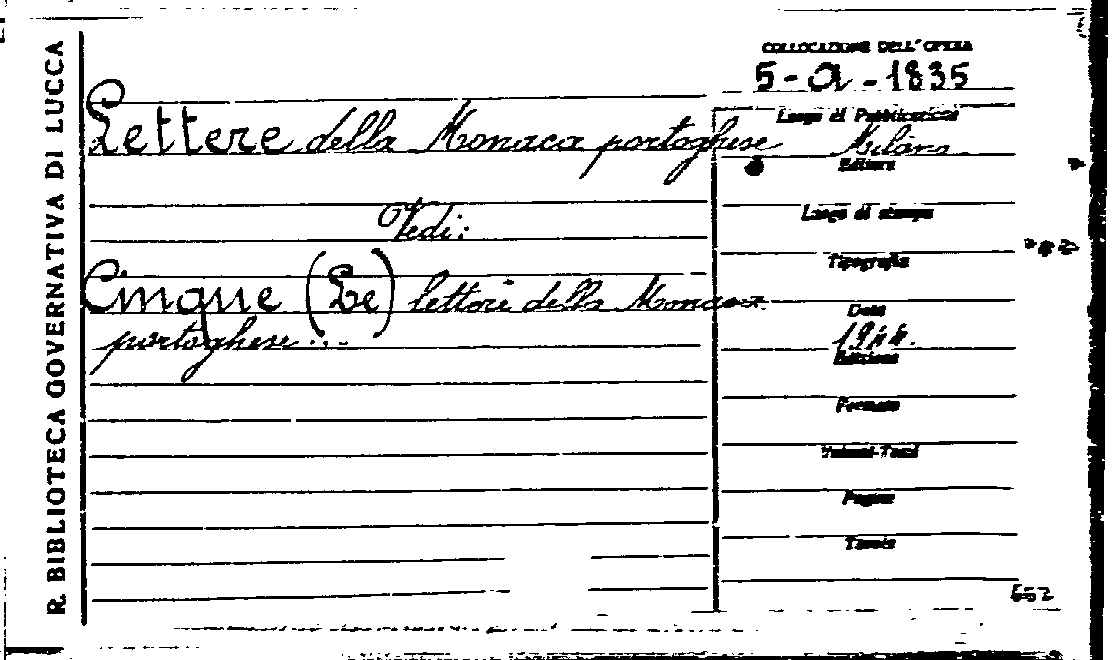 R. BIBLIOTECA GOVERNATIVA DI LUCCA
COLLOCAZIONE DELL'OPERA
5-a-1835
Lettere della Monaca portoghese
Vedi:
Cinque (Le) lettere della Monaca
portoghese...
Luogo di Pubblicazione
Milano
Editore
Luogo di stampa
Tipografia
Data
1944.
Edizione
Formato
Volumi-Tomi
Pagine
Tavole
552